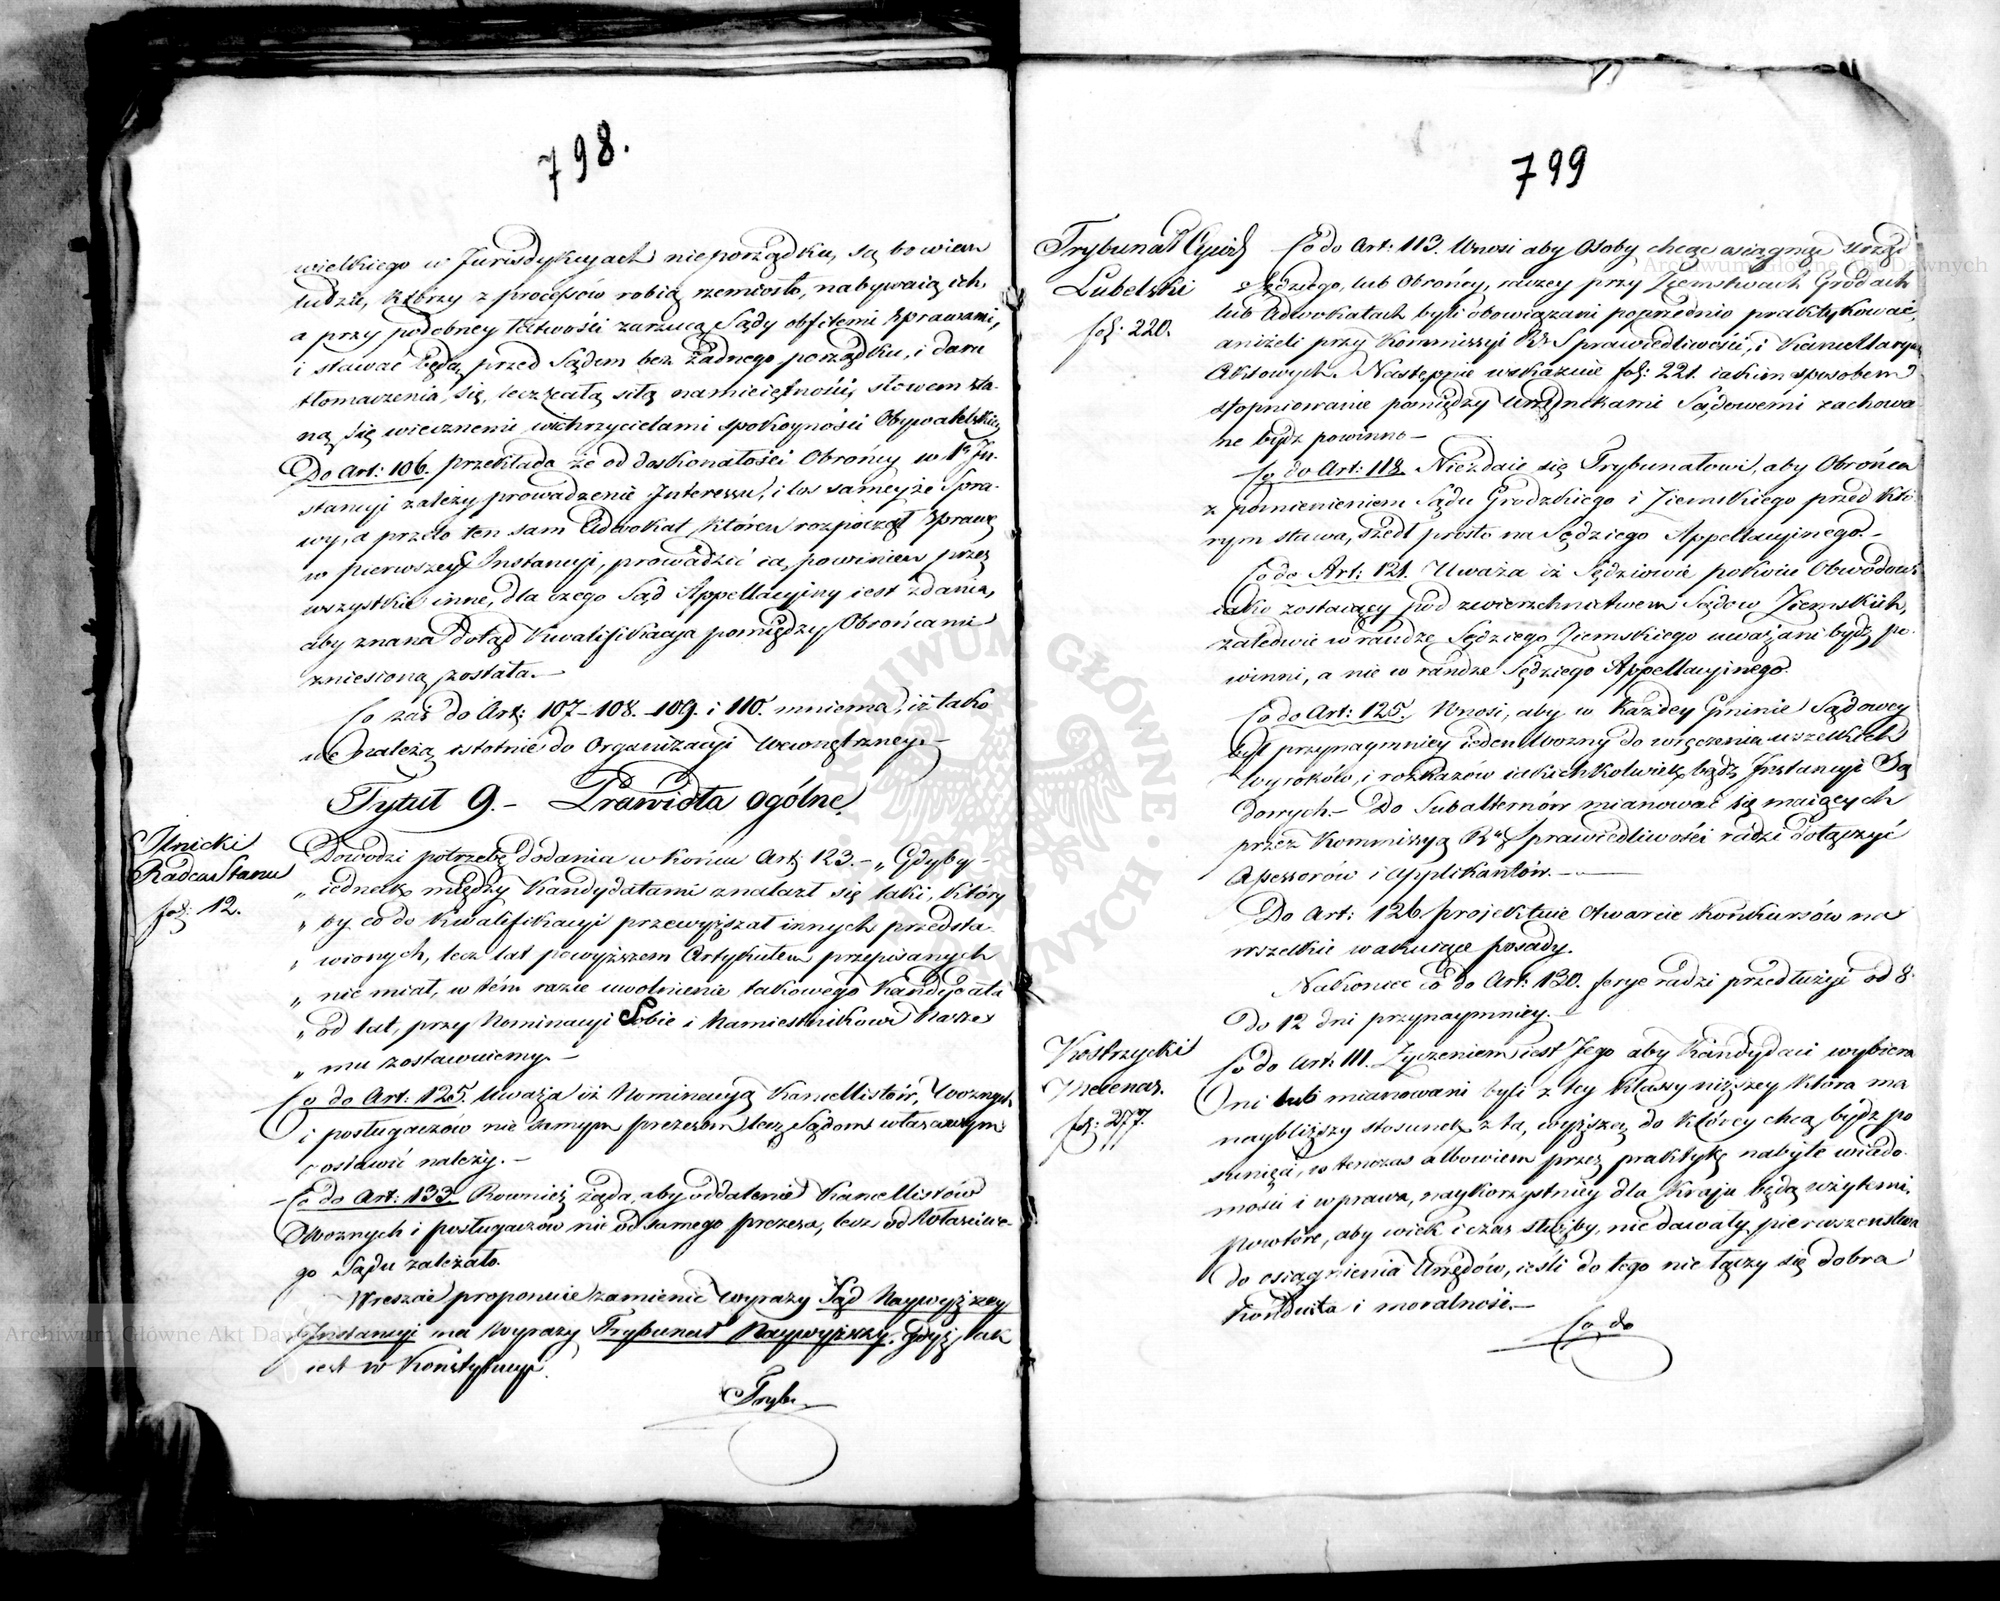 798.
wielkiego w Jurisdykcyach nieporządku, są bowiem
ludzie, którzy z processów robią rzemiosło, nabywaią ich,
a przy podobney łatwości zarzucą Sądy obfitemi sprawami,
i stawać będą przed Sądem bez żadnego porządku, i daru
tłomaczenia się, lecz całą siłą namiętności, słowem sta-
ną się wiecznemi wichrzycielami spokoyności Obywatelskiey
Do Art: 106. przekłada że od doskonałości Obrońcy w 1ey In-
stancyi zależy prowadzenie Interessu, i los sameyże Spra-
wy, a przeto ten sam Adwokat, któren rozpoczął Sprawę
w pierwszey Instancyi, prowadzić ią powinien przez
wszystkie inne, dla czego Sąd Appellacyiny iest zdania,
aby znana dotąd Kwalifikacya pomiędzy Obrońcami
zniesioną została.—
Co zaś do Art: 107-108.-109. i 110. mniema, iż iako
nie należą istotnie do Organizacyi Wewnętrzney.—
Tytuł 9.— Prawidła ogólne.
Ilnicki
Radca Stanu
fol: 12.
Dowodzi potrzebę dodania w końcu Art: 123.— „Gdyby
„ iednak między Kandydatami znalazł się taki, który
„ by co do Kwalifikacyi przewyższał innych przedsta-
„ wionych, lecz lat powyższem Artykułem przepisanych
„ nie miał, w tém razie uwolnienie takowego Kandydata
„ od lat, przy Nominacyi Sobie i Namiestnikowi Nasze-
„ mu zostawuiemy.—
Co do Art: 125. Uważa iż Nominacyą Kancellistów, Woznych
i posługaczów nie samym prezesom lecz Sądom własciwym
zostawić należy.—
Co do Art: 133. Rownież żąda, aby oddalenie Kancellistów
Woznych i posługaczów nie od samego prezesa, lecz od Własciwe-
go Sądu zależało.
Wreszcie proponuie zamienić wyrazy Sąd Naywyższey
Instancyi na Wyrazy Trybunał Naywyższy. gdyż tak
iest w Konstytucyi.
Tryb:
799
Trybunał Cywil:
Lubelski
fol: 220.
Co do Art: 113. Wnosi aby Osoby chcące osiągnąć Urząd
Sędziego, lub Obrońcy, raczey przy Ziemstwach Grodach
lub Adwokatach byli obowiązani poprzednio praktykować,
aniżeli przy Kommissyi Rz: Sprawiedliwości, i Kancellaryach
Aktowych. Następnie wskazuie fol: 221. iakim sposobem
stopniowanie pomiędzy Urzędnikami Sądowemi zachowa
ne bydź powinno—
Co do Art: 118. Niezdaie się Trybunałowi, aby Obrońca
z pominieniem Sądu Grodzkiego i Ziemskiego przed któ-
rym stawa, szedł prosto na Sędziego Appellacyinego.—
Co do Art: 121. Uważa iż Sędziowie pokoiu Obwodowi
iako zostaiący pod zwierzchnictwem Sądow Ziemskich,
zaledwie w randze Sędziego Ziemskiego uważani bydź po-
winni, a nie w randze Sędziego Appellacyinego.
Co do Art: 125. Wnosi, aby w każdey Gminie Sądowey
był przynaymniey ieden Wozny do wręczenia wszelkich
wyroków, i rozkazów iakichkolwiek bądź Instancyi Są
dowych.— Do Subalternów mianować się maiących
przez Kommissyą Rz: Sprawiedliwości radzi dołączyć
Assessorów i applikantów.—
Do Art: 126. projektuie otwarcie konkursów na
wszelkie wakuiące posady.
Nakoniec co do Art: 130. ferye radzi przedłużyć od 8.
do 12 dni przynaymniey.—
Kostrzycki
Mecenas.
fol: 277.
Co do Art: 111. Życzeniem iest Jego aby Kandydaci wybiera
ni lub mianowani byli z tey klassy niższey która ma
naybliższy stosunek z tą, wyższą do którey chcą bydź po
sunięci, w tenczas albowiem przez praktykę nabyte wiado-
mości i wprawa, naykorzystniey dla Kraju będą użytemi.
Powtóre, aby wiek i czas służby, nie dawały pierwszeństwa
do osiągnienia Urzędów, ieśli do tego nie łączy się dobra
Konduita i moralność.—
Co do
Archiwum Główne Akt Dawnych
Archiwum Główne Akt Dawnych
ARCHIWUM GŁÓWNE AKT DAWNYCH